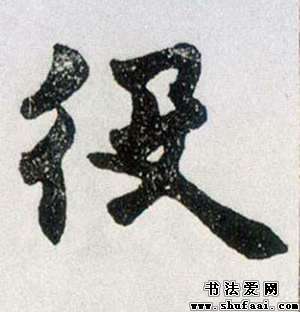 役
书法爱网
www.shufaai.com